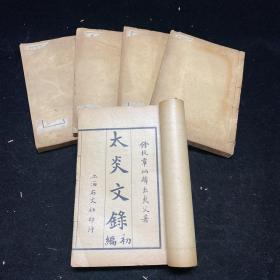 餘杭章炳麟太炎父著
太炎文錄初編
上海右文社印行